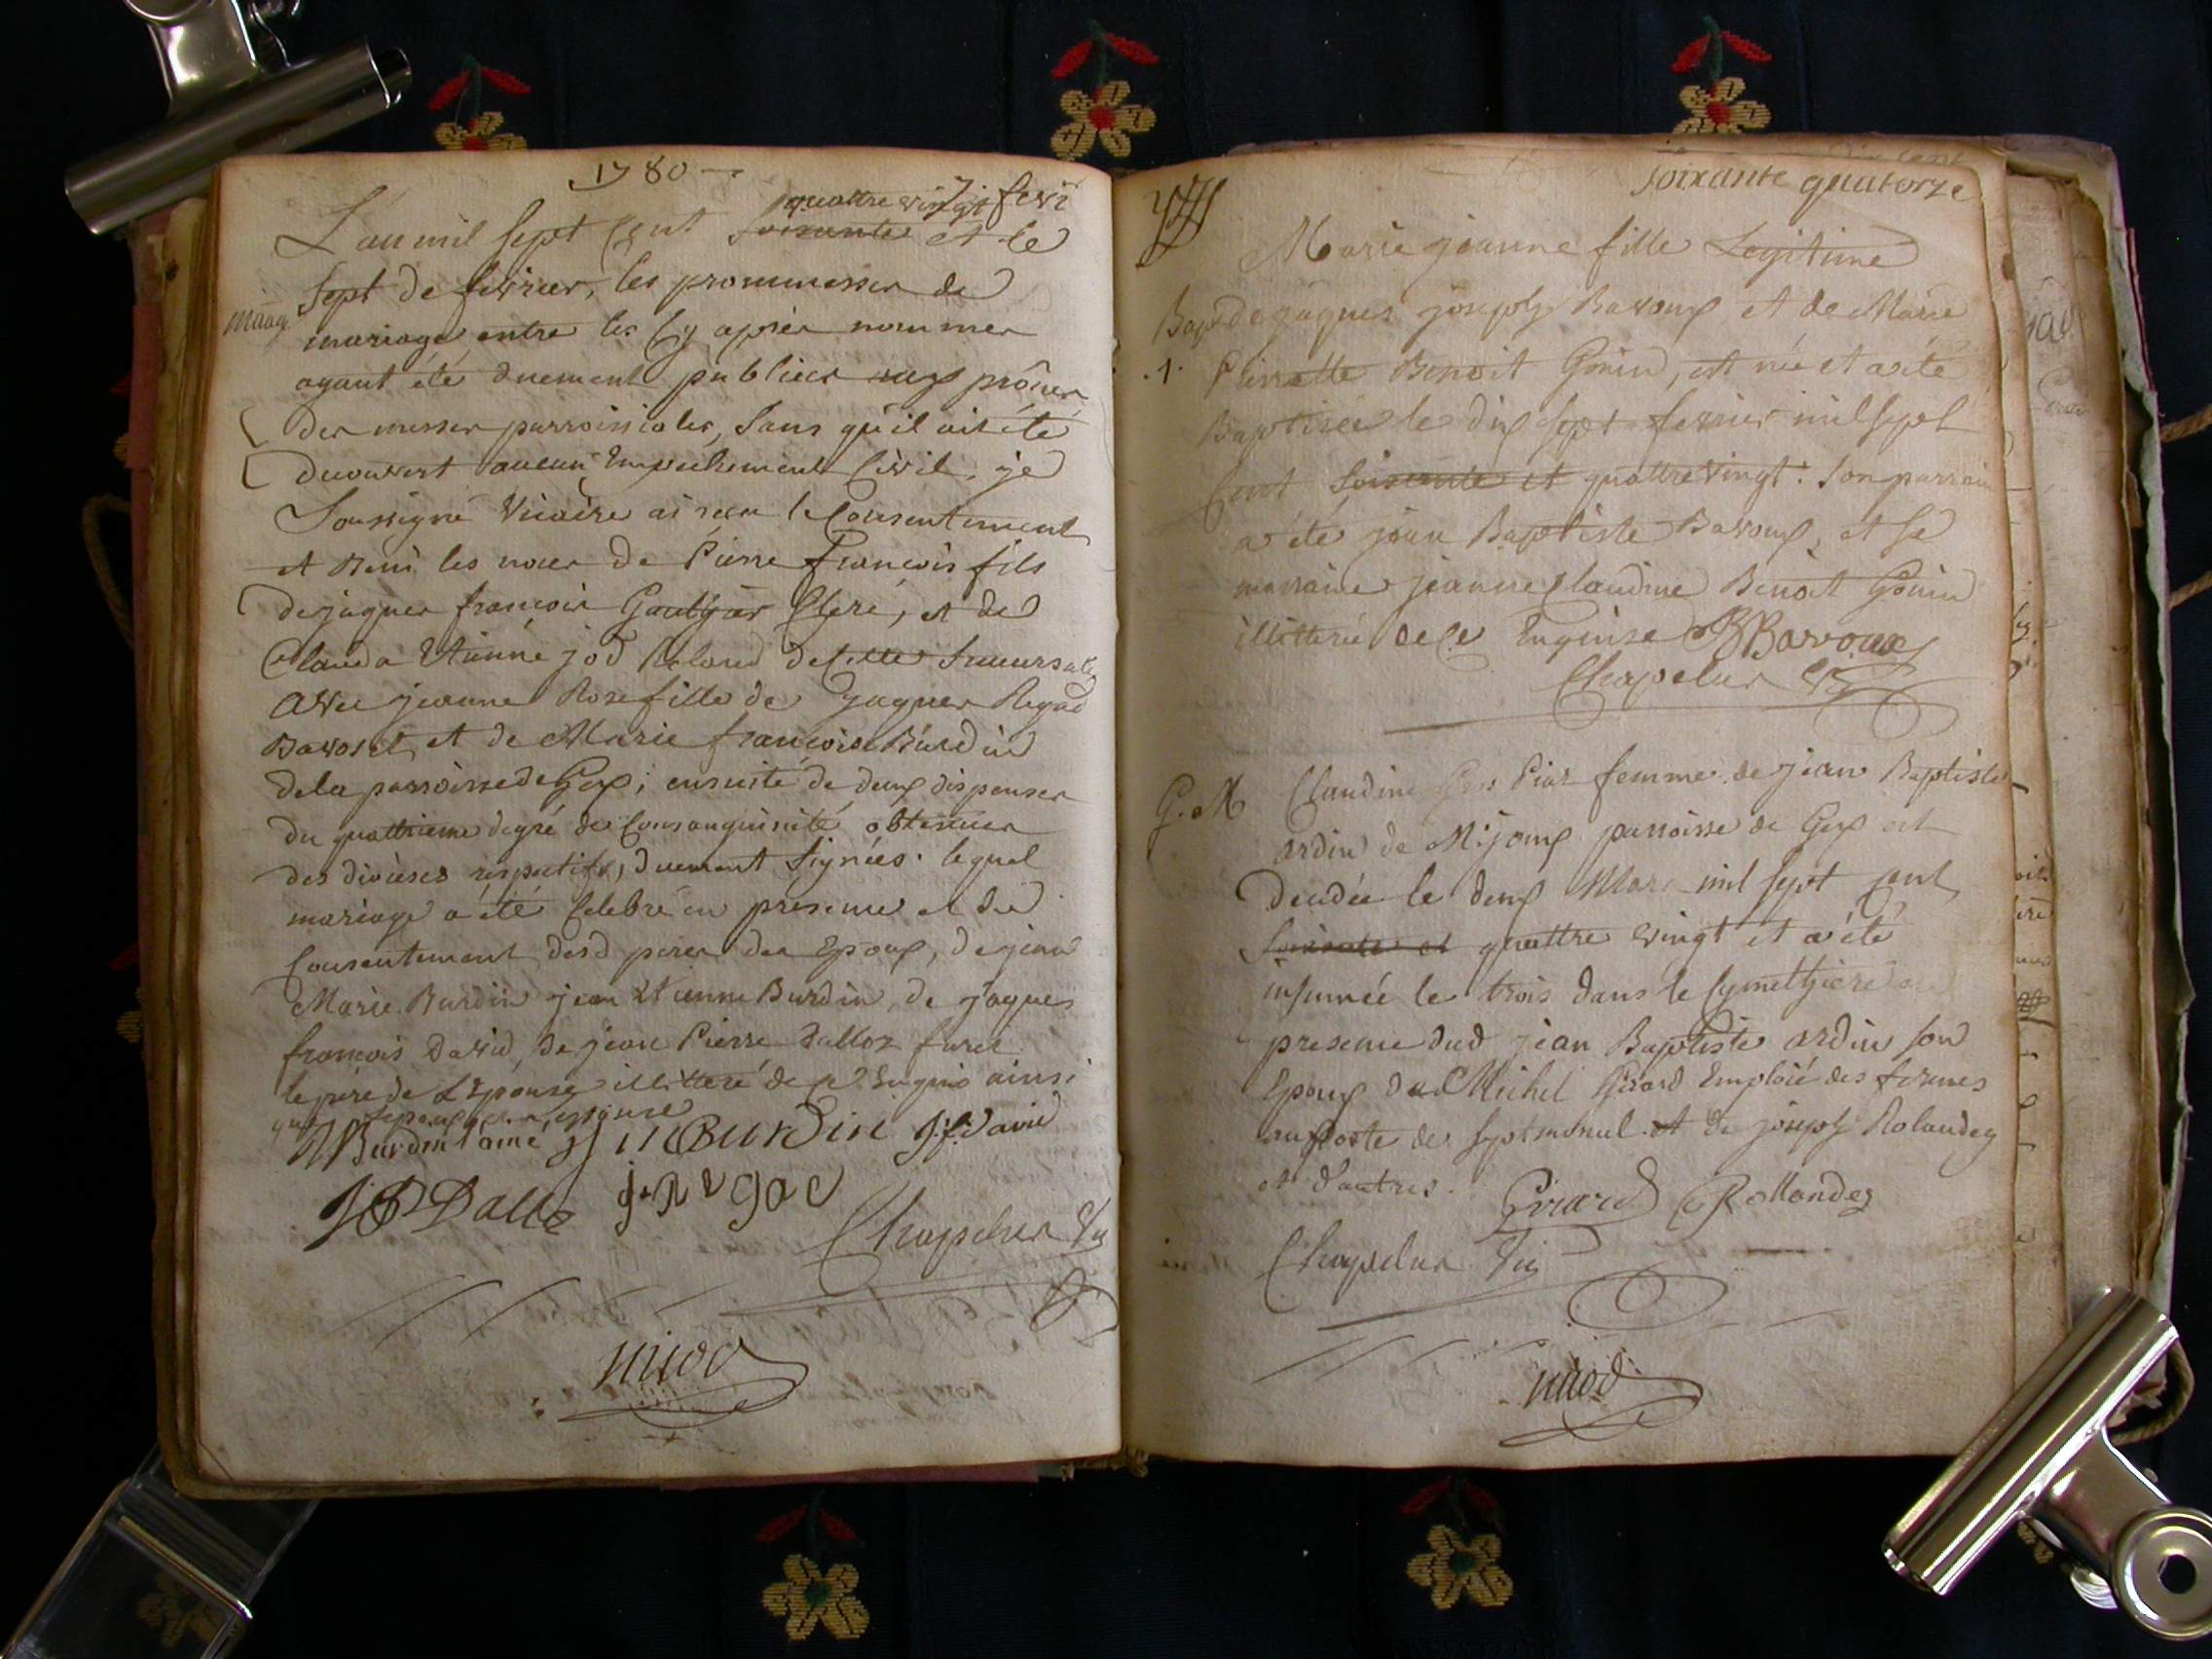 1780
7 fevr
quattre vingt
L'an mil sept Cent soixante et le
sept de fevrier, les prommesses de
mariag
mariage entre les Cy après nommes
ayant été duement publiées aux prônes
des messes parroissiales, sans qu'il ait été
decouvert aucun Empechement Civil, je
Soussigné Vicaire ai recu le Consentement
et Beni les noces de Pierre françois fils
de jaques françois Cléré, et de
Clauda Etienne jod de Succursale
avec jeanne Rose fille de Jaques Regad
et de Marie françoise Burdin
de la parroisse de Gex; ensuite de deux dispenses
du quattrieme degré de Consanguinité obtenues
des diocèses respectifs, duement signées. lequel
mariage a été Celebré en presence et du
Consentement desd peres des Epoux, de jean
Marie Burdin jean Etienne Burdin, de jaques
francois David, de jean Pierre Dalloz furet
le père de L'Epouse illitteré de ce Enquis ainsi
que l'epoux et l'epouse
Burdin l'ainé Burdin j.f. david
JP Dallo
Chapelur Vic
nicod
soixante quatorze
Marie jeanne fille Legitime
Bap de jaques joseph Bavoux et de Marie
.1. Pierrette Benoit Gonin, est née et a été
Baptisée le dix sept fevrier mil sept
Cent soixante et quattre vingt. Son parrain
a été jean Baptiste Bavoux, et sa
marraine jeanne Claudine Benoit Gonin
illitterée de ce Enquise JB Bavoux
Chapelur Vic
G. M Claudine femme de jean Baptiste
ardin de Mijoux parroisse de Gex est
decedée le deux Mars mil sept cent
soixante et quattre vingt et a été
inhumée le trois dans le Cymettiere en
presence dud jean Baptiste ardin son
Epoux de Michel Girard Emploié des fermes
au poste de Septmoncel et de joseph Rolandez
et d'autres. Girard Rollandez
Chapelur Vic
nicod